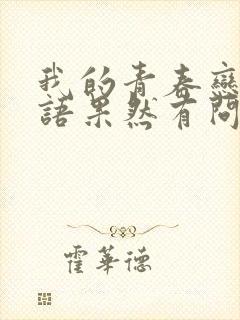 我的青春戀
語果然有問
霍華德